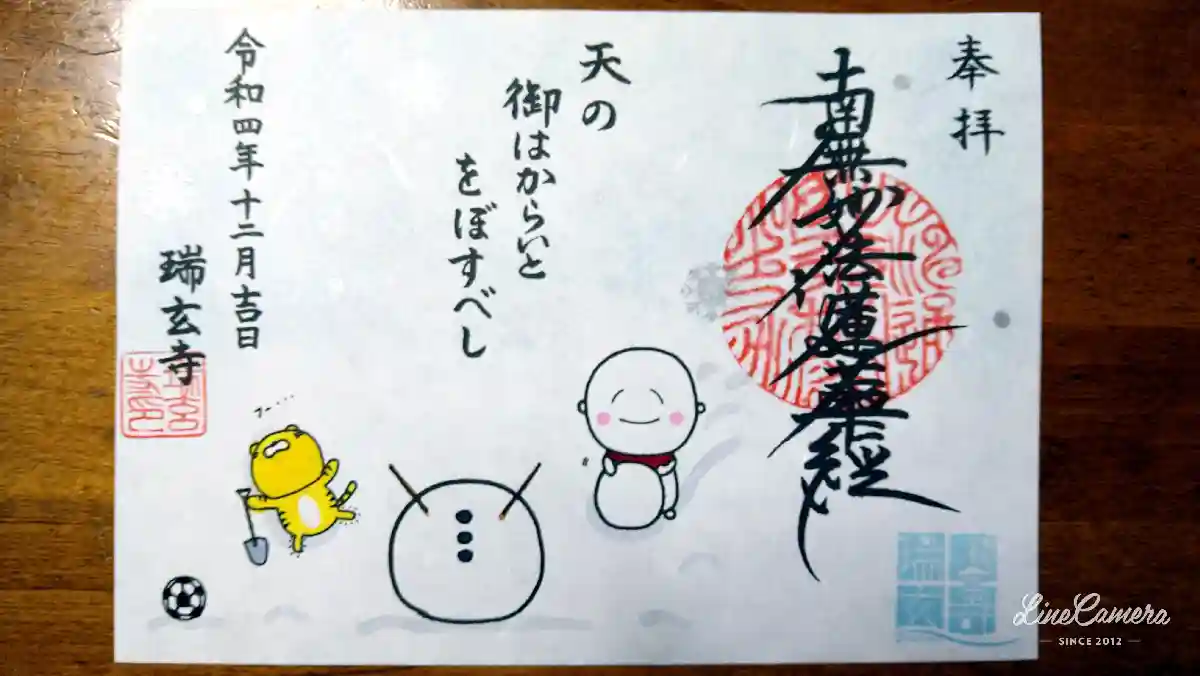 奉拝
南無妙法蓮華経
天の
御はからいと
をぼすべし
令和四年十二月吉日
瑞玄寺
LineCamera
SINCE 2012